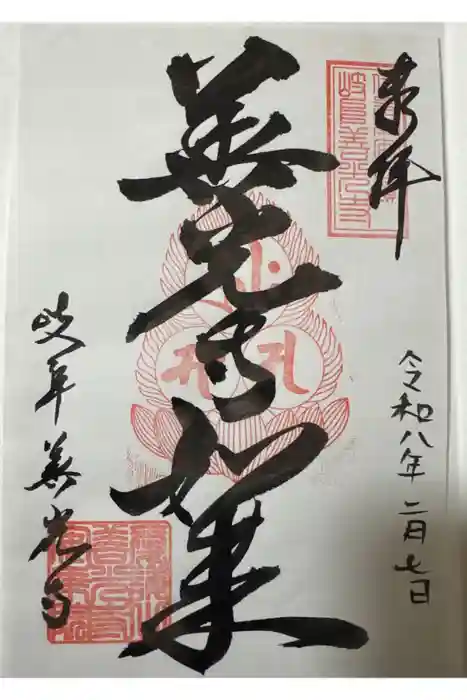 奉拝
令和八年二月七日
善光寺如来
岐阜善光寺